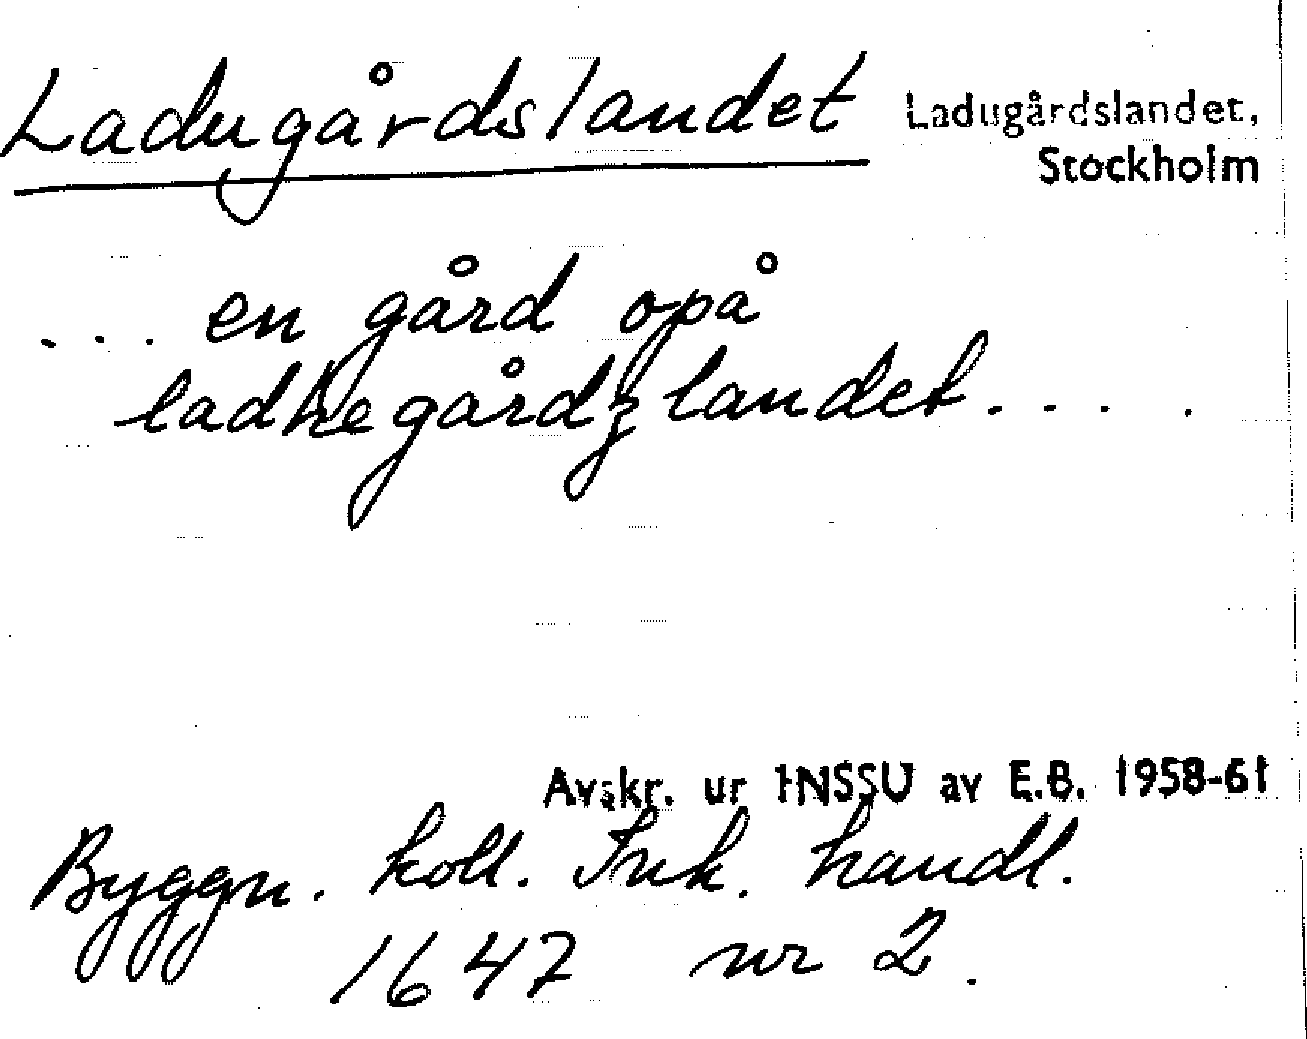 Ladugårdslandet
Ladugårdslandet,
Stockholm
... en gård opå
ladhegårdzlandet....
Avskr. ur INSSU av E.B. 1958-61
Byggn. koll. Ink. handl.
1647 nr 2.